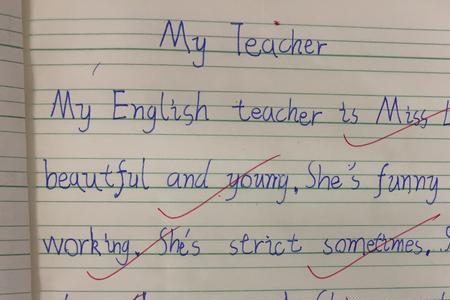 My Teacher
My English teacher is Miss
beautful and young. She's funny
working. She's strict sometimes.